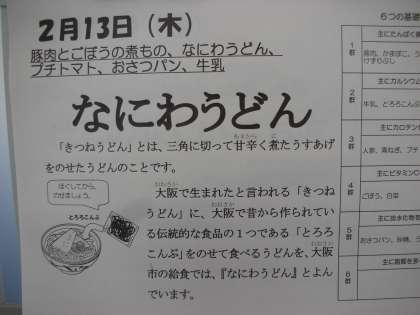 2月13日（木）
豚肉とごぼうの煮もの、なにわうどん、
プチトマト、おさつパン、牛乳
なにわうどん
「きつねうどん」とは、三角に切って甘辛く煮たうすあげ
をのせたうどんのことです。
ほぐしてから、
のせましょう。
とろろこんぶ
大阪で生まれたと言われる「きつね
うどん」に、大阪で昔から作られてい
る伝統的な食品の１つである「とろろ
こんぶ」をのせて食べるうどんを、大阪
市の給食では、『なにわうどん』とよん
でいます。
６つの基礎
1群
主にたんぱく
2群
主にカルシウム
牛乳、とろろこん
3群
主にカロチン
人参、青ねぎ、プチ
4群
主にビタミンC
ごぼう、白菜
5群
主に炭水化物
おさつパン、砂糖、
6群
主に脂質